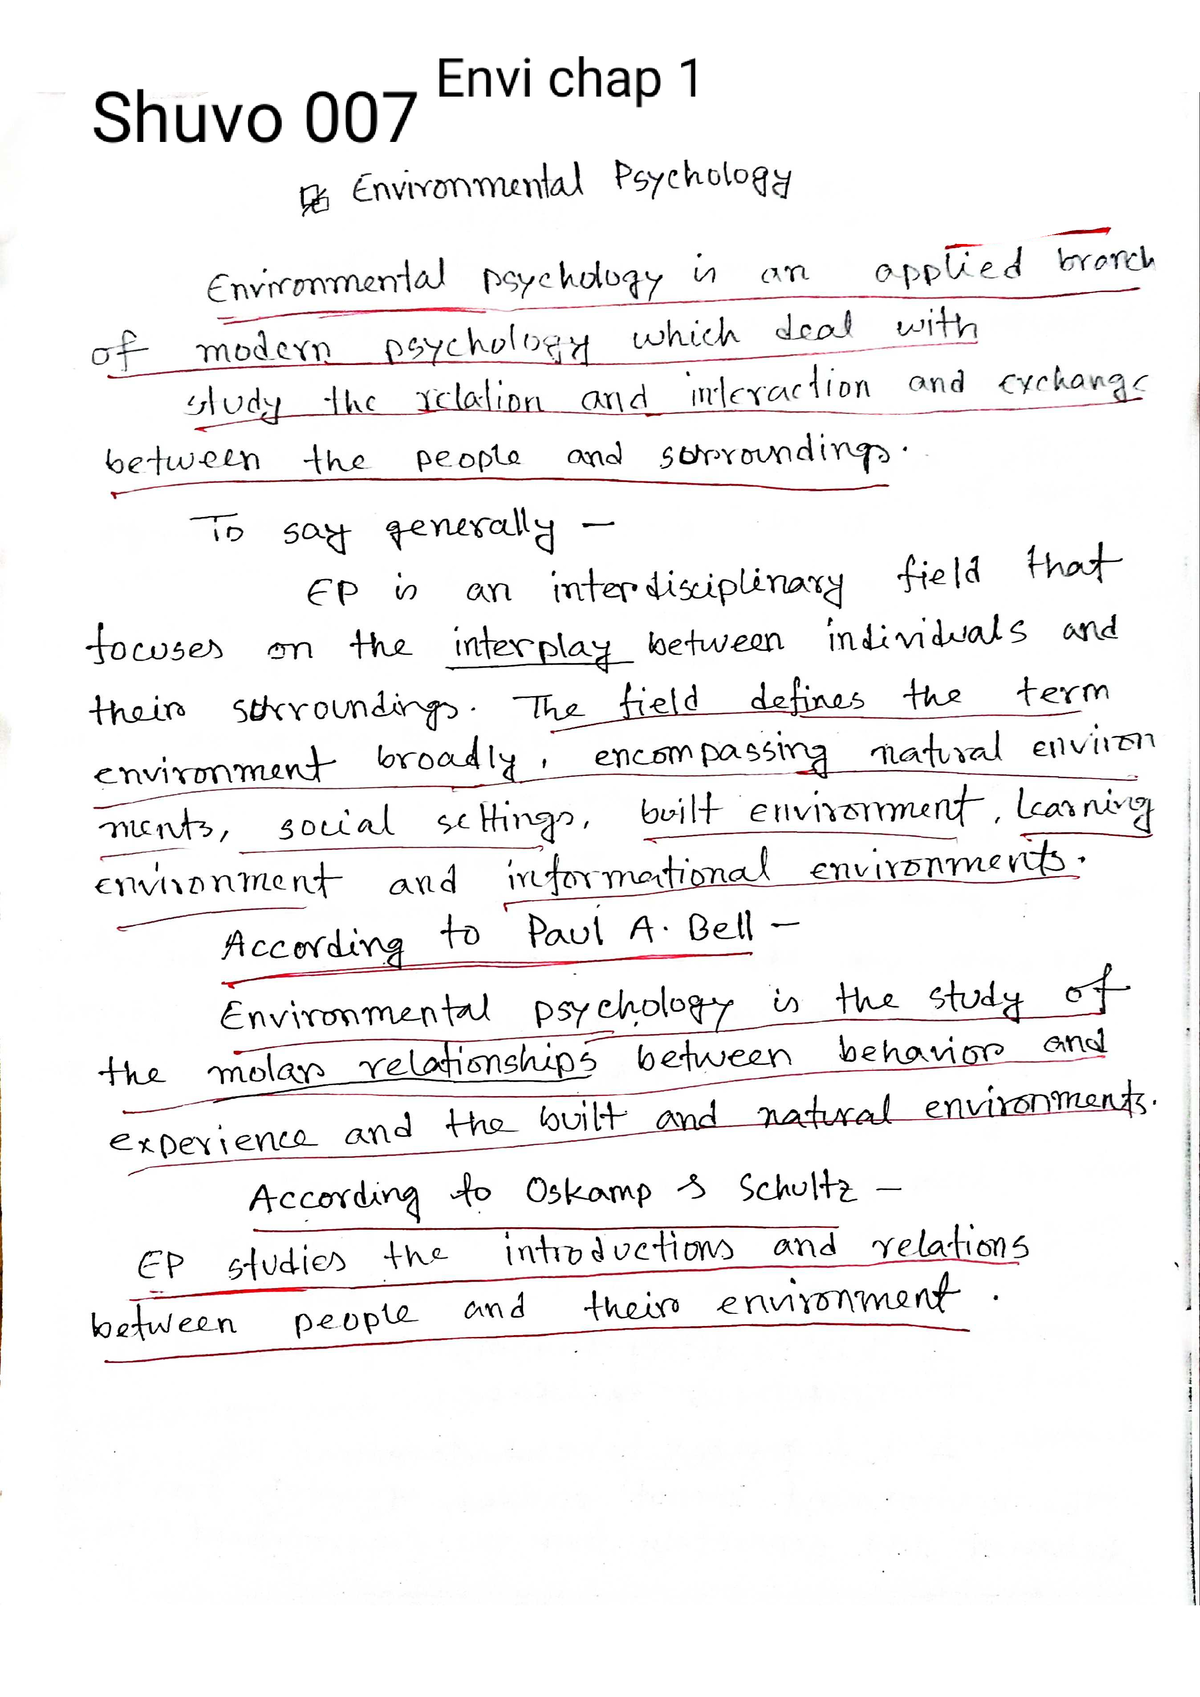 Envi chap 1
Shuvo 007
Environmental Psychology
Environmental psychology is an applied branch
of modern psychology which deal with
study the relation and interaction and exchange
between the people and sorroundings.
To say generally –
EP is an interdisciplinary field that
focuses on the interplay between individuals and
their sorroundings. The field defines the term
environment broadly, encompassing natural environ
ments, social settings, built environment, learning
environment and informational environments.
According to Paul A. Bell –
Environmental psychology is the study of
the molar relationships between behavior and
experience and the built and natural environments.
According to Oskamp & Schultz –
EP studies the introductions and relations
between people and their environment.